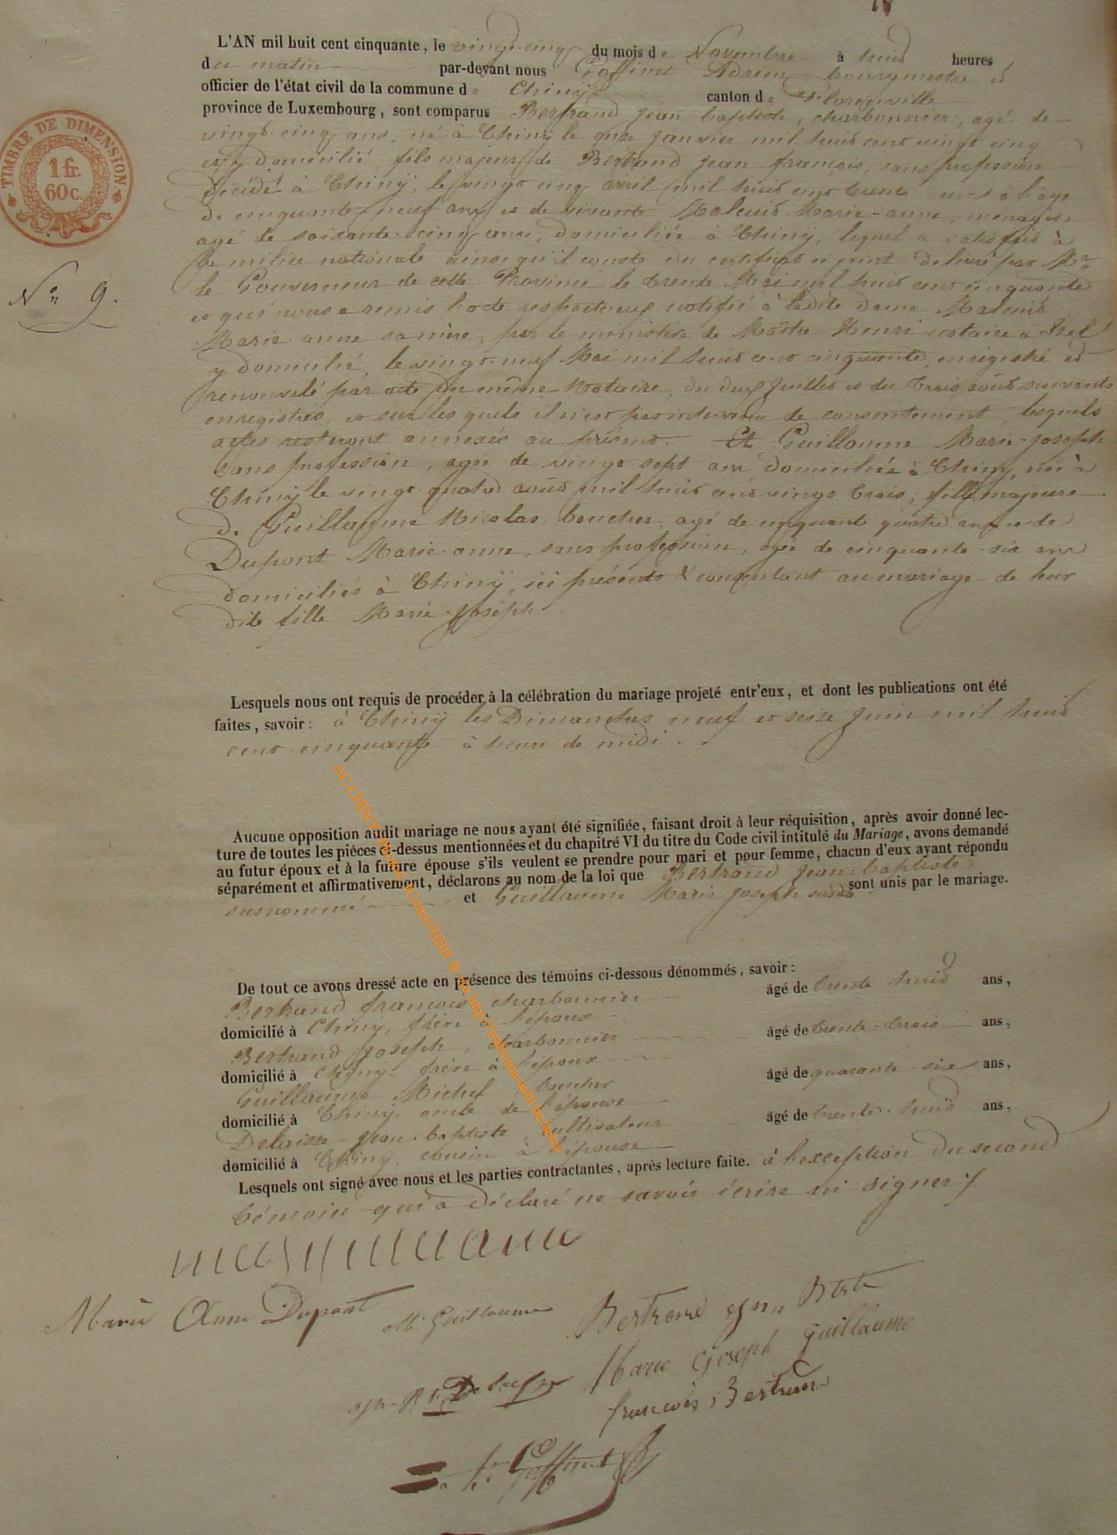 L'AN mil huit cent cinquante, le vingt-cinq du mois de Novembre à huit heures
du matin par-devant nous Goffinet Adrien bourgmestre et
officier de l'état civil de la commune de Chiny canton de Florenville
province de Luxembourg, sont comparus Bertrand Jean baptiste, charbonnier, agé de
vingt-cinq ans, né à Chiny le onze Janvier mil huit cent vingt cinq
et y domicilié, fils majeur de Bertrand Jean françois, sans profession
décédé à Chiny, le vingt cinq avril mil huit cent trente à l'age
de cinquante-neuf ans et de vivante Maleuit Marie-anne, ménagère
agé de soixante-cinq ans, domiciliée à Chiny, lequel a satisfait à
la milice nationale ainsi qu'il conste du certificat ci joint délivré par Mr
le Gouverneur de cette Province le trente Mai mil huit cent cinquante
et qui nous a remis l'acte respectueux notifié à ladite dame Maleuit
Marie-anne sa mère, par le ministère de Henri notaire à Izel
y domicilié, le vingt-neuf Mai mil huit cent cinquante, enregistré et
renouvelé par acte du même Notaire, du deux Juillet et du trois août suivants
enregistrés, et sur les quels il n'est pas intervenu de consentement, lesquels
actes resteront annexés au présent. Et Guillaume Marie-Joseph
sans profession, agée de vingt sept ans domiciliée à Chiny, née à
Chiny le vingt quatre août mil huit cent vingt trois, fille majeure
de Guillaume Nicolas boucher, agé de cinquante quatre ans et de
Dupont Marie-anne, sans profession, agée de cinquante-six ans
domiciliés à Chiny, ici présents & consentant au mariage de leur
dite fille Marie-Joseph.
TIMBRE DE DIMENSION
1 fr.
60 c.
No 9.
Lesquels nous ont requis de procéder à la célébration du mariage projeté entr'eux, et dont les publications ont été
faites, savoir: à Chiny les Dimanches neuf et seize Juin mil huit
cent cinquante à heure de midi.
Aucune opposition audit mariage ne nous ayant été signifiée, faisant droit à leur réquisition, après avoir donné lec-
ture de toutes les pièces ci-dessus mentionnées et du chapitre VI du titre du Code civil intitulé du Mariage, avons demandé
au futur époux et à la future épouse s'ils veulent se prendre pour mari et pour femme, chacun d'eux ayant répondu
séparément et affirmativement, déclarons au nom de la loi que Bertrand Jean-baptiste
susnommé et Guillaume Marie Joseph sont unis par le mariage.
De tout ce avons dressé acte en présence des témoins ci-dessous dénommés, savoir:
Bertrand françois charbonnier âgé de trente huit ans,
domicilié à Chiny, frère à l'époux
Bertrand Joseph, charbonnier âgé de trente-trois ans,
domicilié à Chiny, frère à l'époux
Guillaume Michel boucher âgé de quarante-six ans,
domicilié à Chiny, oncle de l'épouse
Delaisse Jean-baptiste cultivateur âgé de trente-huit ans,
domicilié à Chiny, cousin à l'épouse
Lesquels ont signé avec nous et les parties contractantes, après lecture faite. à l'exception du second
témoin qui a déclaré ne savoir écrire ni signer
Marie Anne Dupont
M. Guillaume
Bertrand Jean Btste
Marie Joseph Guillaume
françois Bertrand
Goffinet